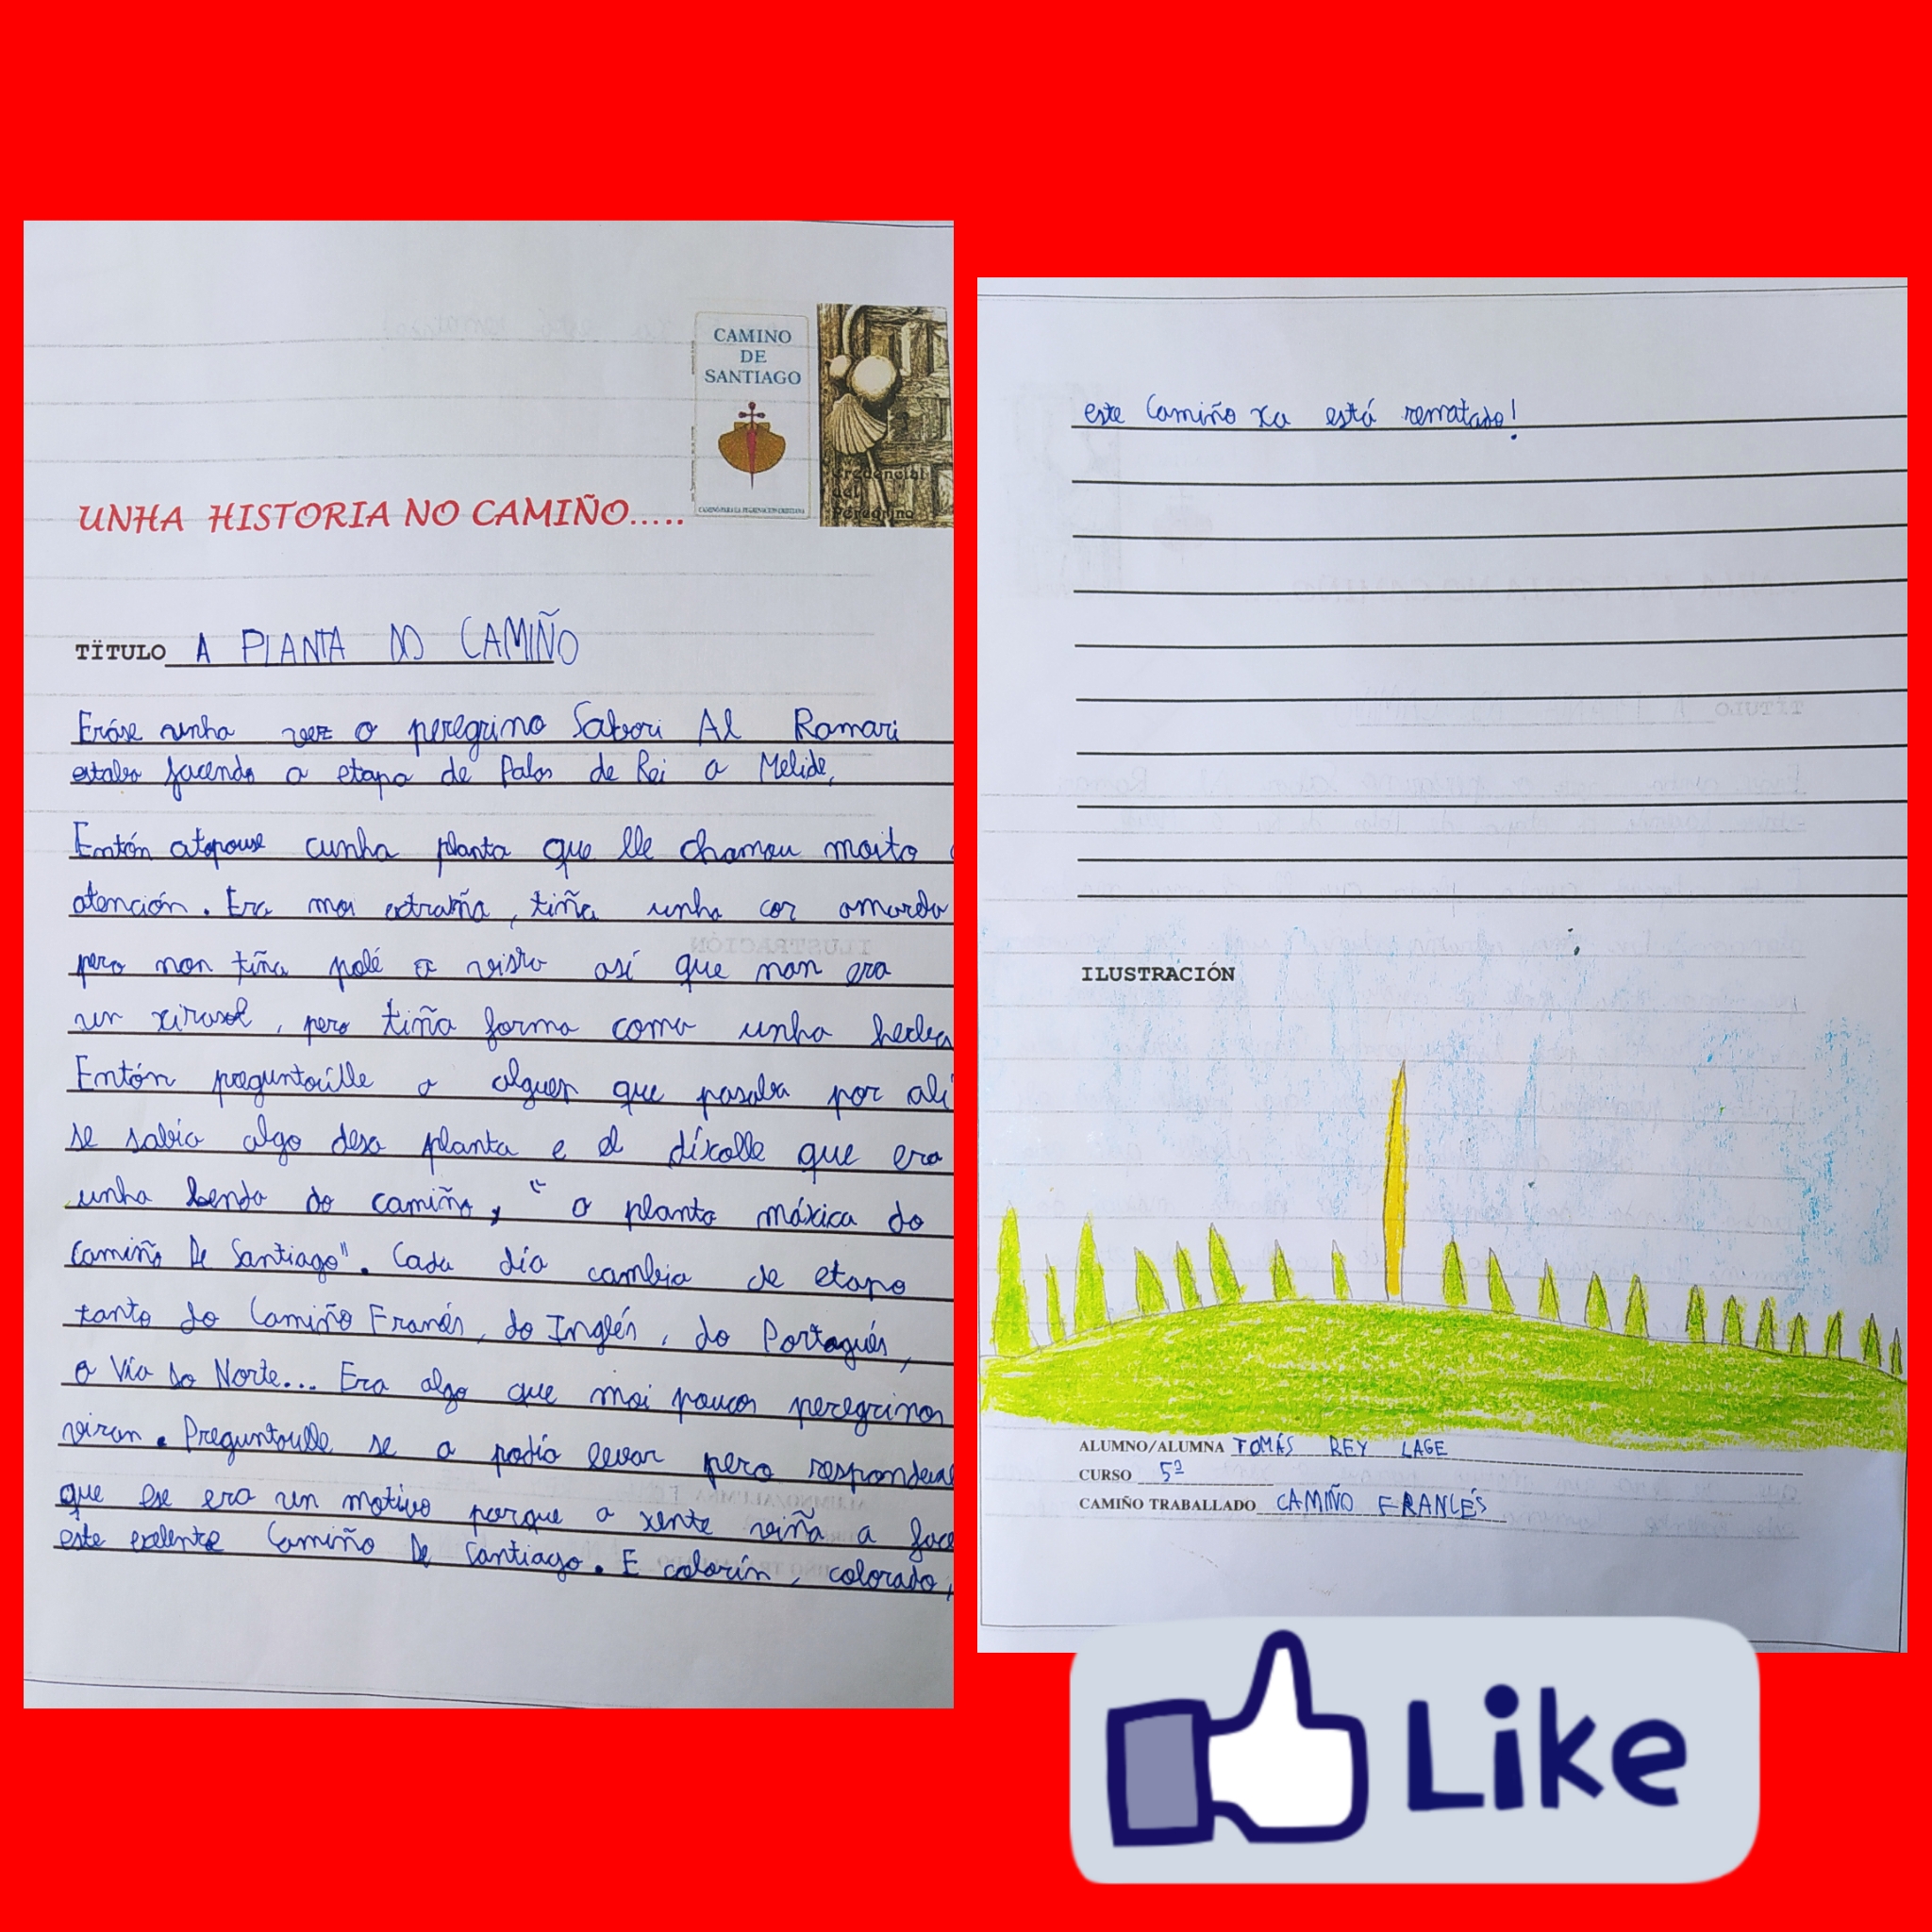 CAMINO
DE
SANTIAGO
Credencial
del
Peregrino
UNHA HISTORIA NO CAMIÑO.....
TÏTULO A PLANTA DO CAMIÑO
Eráse unha vez o peregrino Sabori Al Ramari
estaba facendo a etapa de Palas de Rei a Melide,
Entón atopouse cunha planta que lle chamou moito
atención. Era moi extraña, tiña unha cor amarela
pero non tiña polé a vista así que non era
un xirasol, pero tiña forma coma unha hedra
Entón preguntoulle a alguen que pasaba por alí
se sabía algo desa planta e el díxolle que era
unha lenda do camiño, " a planta máxica do
Camiño De Santiago". Cada día cambia de etapa
tanto do Camiño Francés, do Inglés, do Portugués,
a Vía do Norte... Era algo que moi poucos peregrinos
viran. Preguntoulle se a podía levar pero
que ese era un motivo porque a xente viña a
este exelente Camiño De Santiago. E colorín, colorado,
este Camiño xa está rematado!
ILUSTRACIÓN
ALUMNO/ALUMNA TOMÁS REY LAGE
CURSO 5º
CAMIÑO TRABALLADO CAMIÑO FRANCÉS
Like